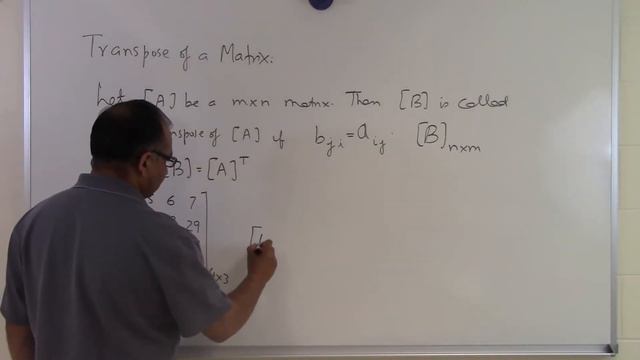 Transpose of a Matrix.
Let [A] be a m×n matrix. Then [B] is called
transpose of [A] if b_ji = a_ij. [B]_n×m
[B] = [A]^T
5 6 7
29
×3
[